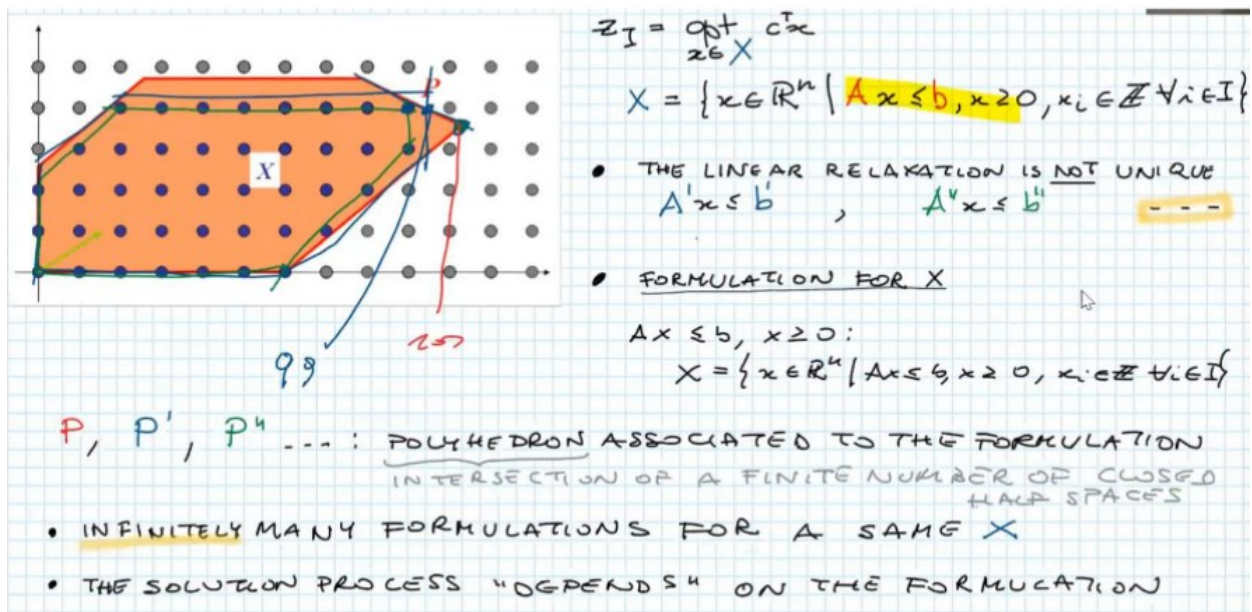 z_I = opt cᵀx
x∈X
X = {x∈ℝⁿ | A x ≤ b, x≥0, x_i ∈ ℤ ∀i∈I}
P
X
• THE LINEAR RELAXATION IS NOT UNIQUE
A'x ≤ b' , A"x ≤ b" ---
• FORMULATION FOR X
Ax ≤ b, x ≥ 0:
X = {x∈ℝⁿ | Ax≤b, x≥0, x_i∈ℤ ∀i∈I}
99
P, P', P" ---: POLYHEDRON ASSOCIATED TO THE FORMULATION
INTERSECTION OF A FINITE NUMBER OF CLOSED
HALF SPACES
• INFINITELY MANY FORMULATIONS FOR A SAME X
• THE SOLUTION PROCESS "DEPENDS" ON THE FORMULATION